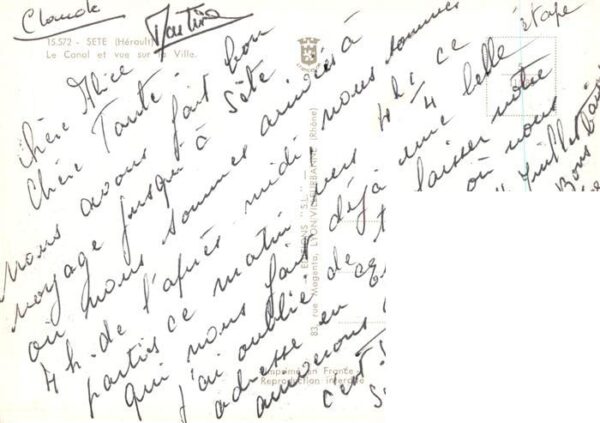 Claude
Martine
15.572 - SETE (Hérault)
Le Canal et vue sur la Ville.
Chère Alice
Chère Tante.
Nous avons fait bon
voyage jusqu'à Sète
où nous sommes arrivés à
4 h. de l'après midi nous sommes
partis ce matin vers 4h 1/4 ce
qui nous fait déjà une belle étape
J'ai oublié de laisser notre
adresse en où nous
Juillet
arriverons
Bons
c'est
EDITIONS "S.L." -
83, rue Magenta, LYON-VILLEURBANNE (Rhône)
Imprimé en France
Reproduction interdite